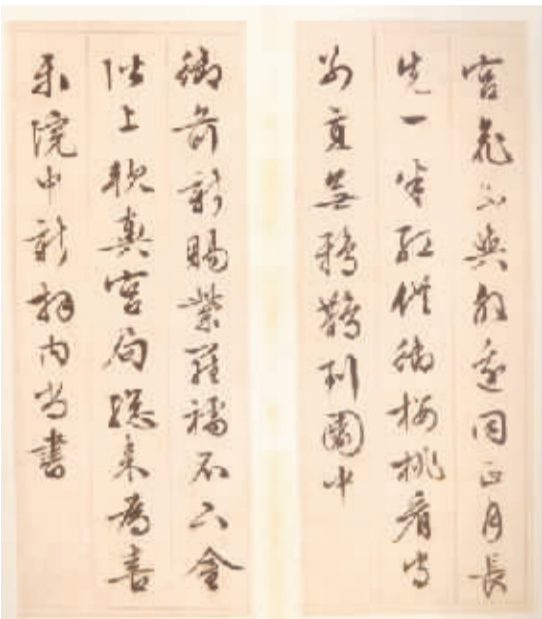 宮花不與外同正月長
先一半紅供御櫻桃看守
別直無鴉鵲到園中
御前新賜紫羅襦不下金
階上軟輿宮局總來為喜
樂院中新拜內尚書